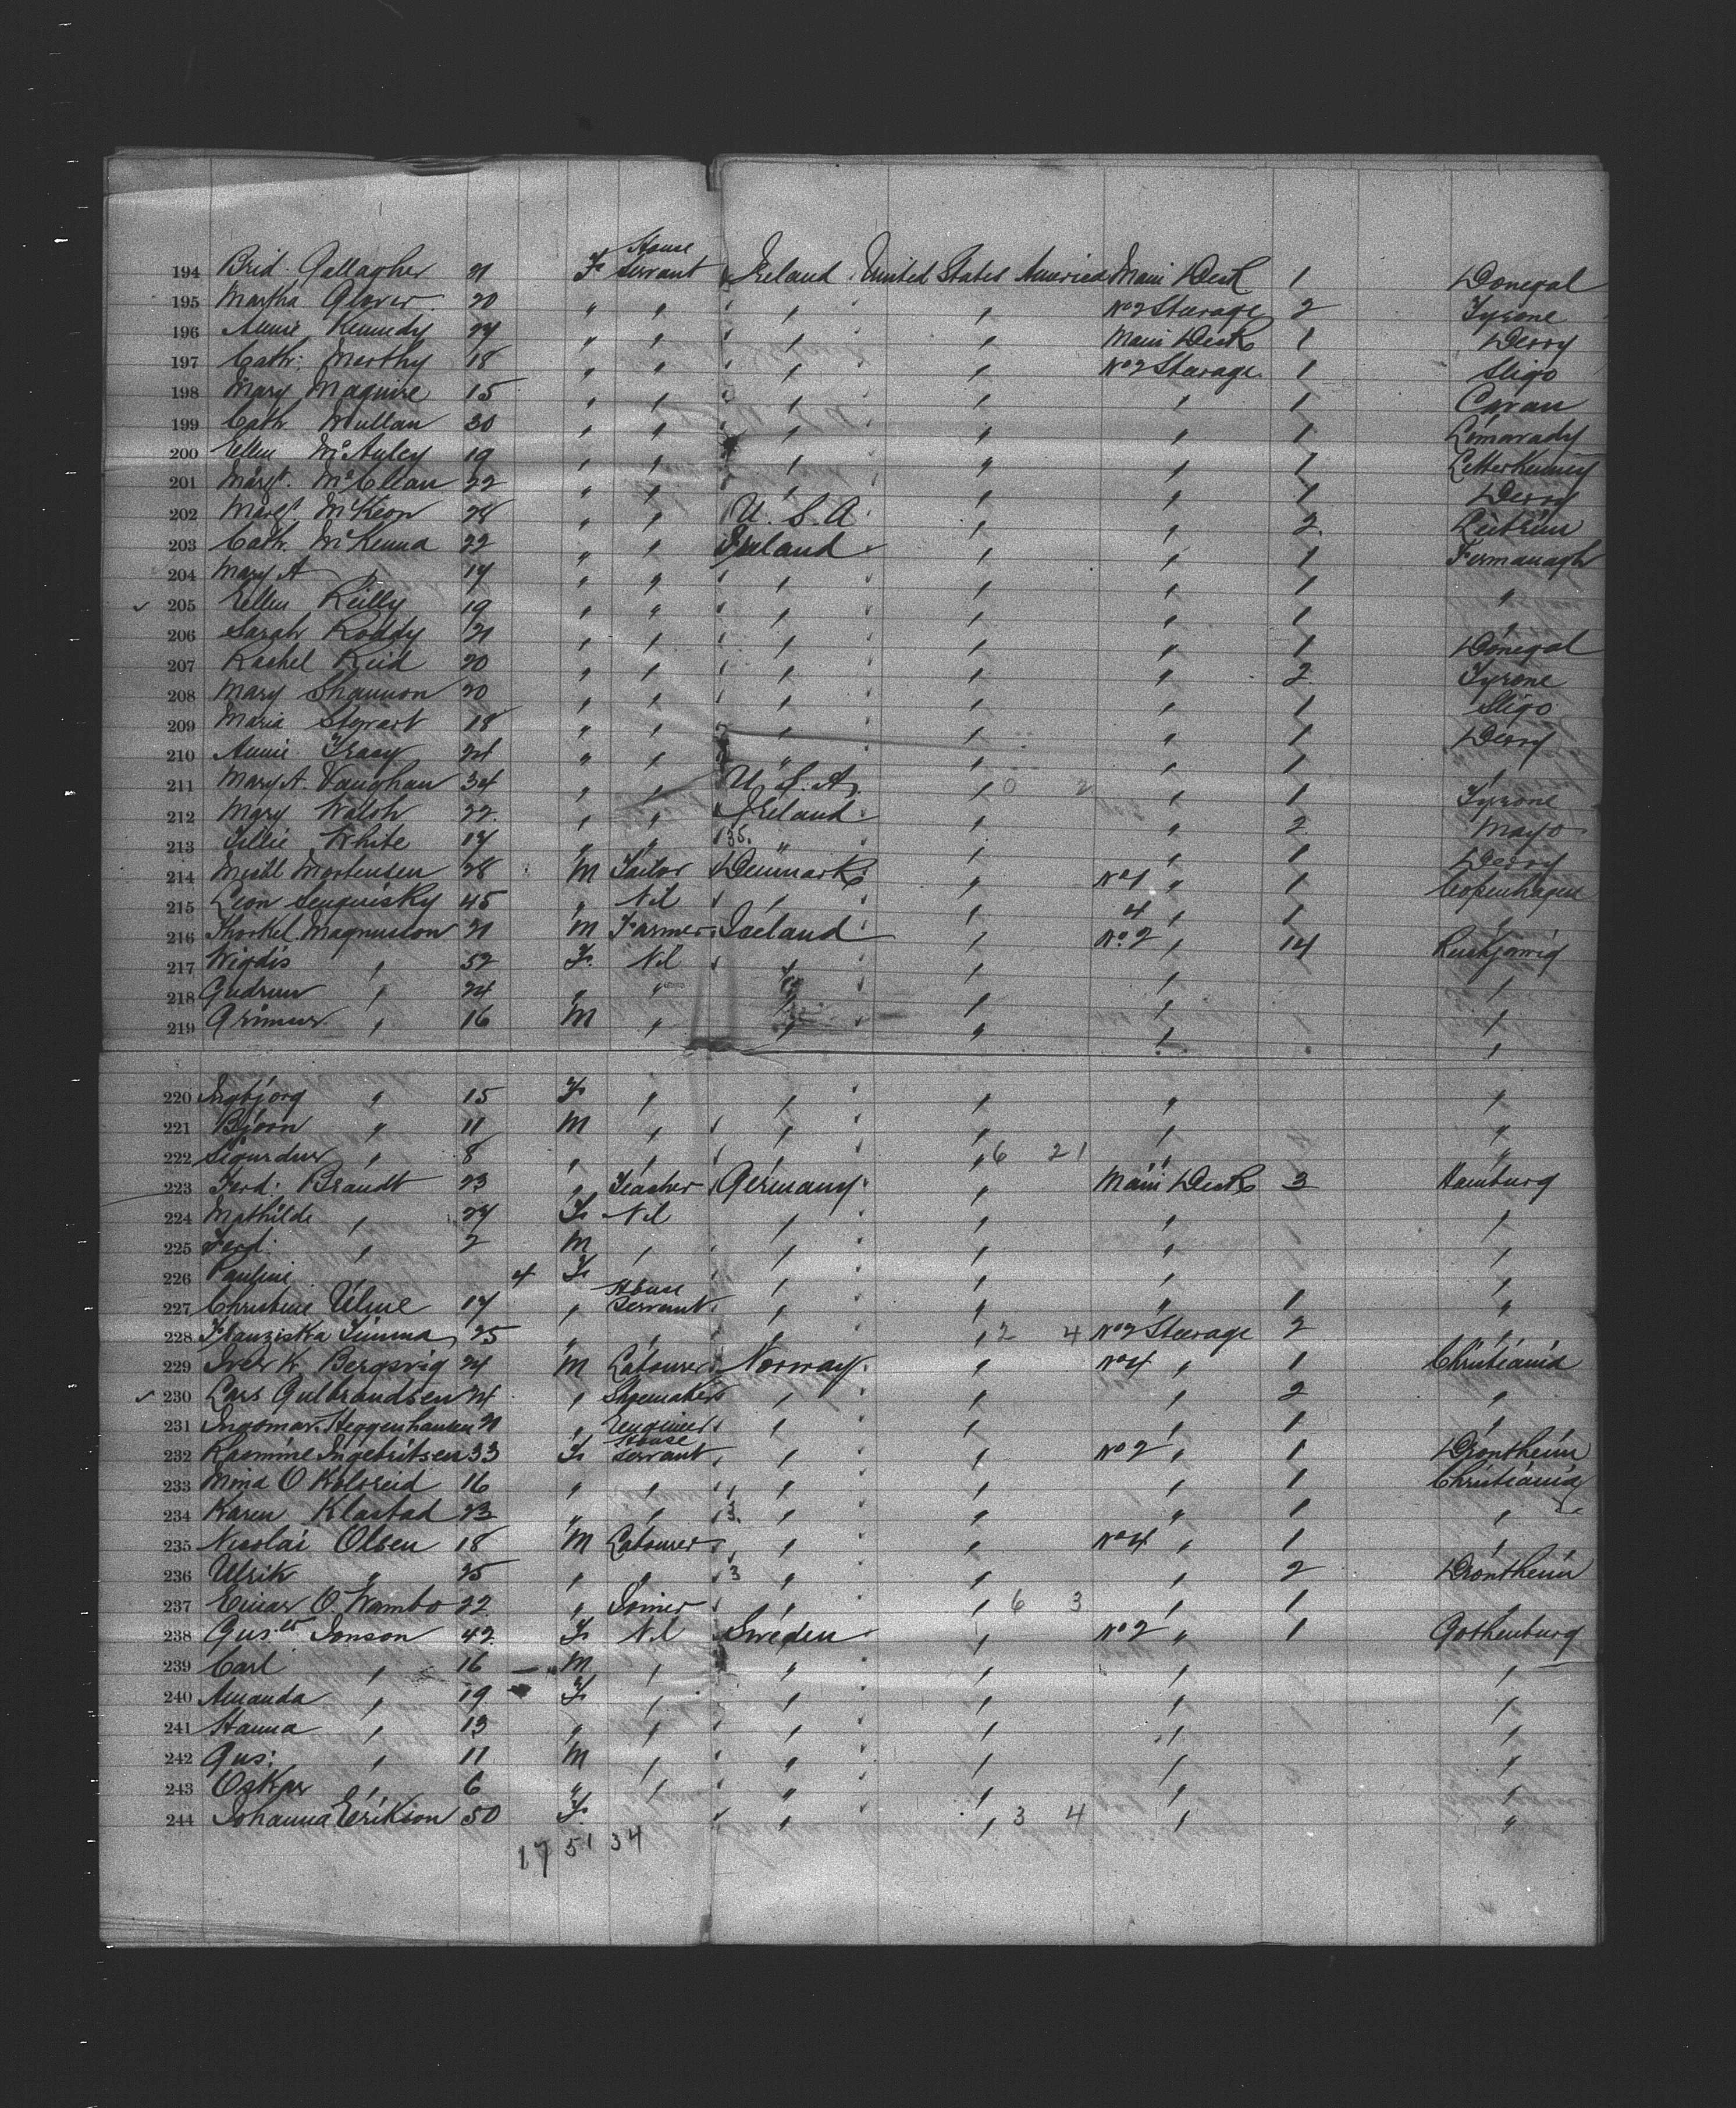 194 Brid. Gallagher 21 F House Servant Ireland United States America Main Deck 1 Donegal
195 Martha Glover 20 " " " " " No 2 Steerage 2 Tyrone
196 Annie Kennedy 24 " " " " Main Deck 1 Derry
197 Cath: Morthy 18 " " " " No 2 Steerage 1 Sligo
198 Mary Maguire 15 " " " " " 1 Cavan
199 Cath Mullan 30 " " " " " 1 Limavady
200 Ellen McAuley 19 " " " " " 1 Letterkenny
201 Margt. McClean 22 " " " " " 1 Derry
202 Margt McKeon 28 " " U.S.A " " 2 Leitrim
203 Cath. McKenna 22 " " Ireland " " 1 Fermanagh
204 Mary A " 17 " " " " " 1 "
205 Ellen Reilly 19 " " " " " 1 "
206 Sarah Roddy 21 " " " " " 1 Donegal
207 Rachel Reid 20 " " " " " 2 Tyrone
208 Mary Shannon 20 " " " " " 1 Sligo
209 Maria Stewart 18 " " " " " 1 Derry
210 Annie Tracy 24 " " " " " 1 "
211 Mary A. Vaughan 34 " " U.S.A. " 0 2 " 1 Tyrone
212 Mary Walsh 22 " " Ireland " " 2 Mayo
213 Tillie White 17 " " 35. " " " 1 Derry
214 Mortensen 28 M Tailor Denmark " No 1 " 1 Copenhagen
215 Leon 45 " Nil " " 4 " 1 "
216 Thorkel Magnusson 21 M Farmer Iceland " No 2 " 14
217 Wigdis " 52 F. Nil " " " "
218 Gudrun " 24 " " " " " "
219 Grimur " 16 M " " " " "
220 Ingbjorg " 15 F " " " " "
221 Bjorn " 11 M " " " " "
222 Sigurdur " 8 " " " " 6 21 " "
223 Ferd: Brandt 23 " Teacher Germany " Main Deck 3 Hamburg
224 Mathilde " 24 F Nil " " " "
225 Ferd. " 2 M " " " " "
226 Pauline 4 F " " " "
227 Christine Ulme 17 " House Servant " " " 1 "
228 Franziska Timma 25 " " " " 2 4 No 2 Steerage 2 "
229 Iver K. Bergsvig 24 M Labourer Norway " No 4 " 1 Christiania
230 Lars Gulbrandsen 24 " Shoemaker " " " 2 "
231 Ingomar Heggenhausen 21 " Engineer " " " 1 "
232 Rasmine Ingebritsen 33 F House Servant " " No 2 " 1 Drontheim
233 Mina O 16 " " " " " 1 Christiania
234 Karen Klastad 23 " " 3. " " " 1 "
235 Nicolai Olsen 18 M Labourer " " No 4 " 1 "
236 Ulrik " 25 " " 3 " " " 2 Drontheim
237 Einar O. Wambo 22 " Joiner " " 6 3 " 1 "
238 Gus.et Jonson 42 F Nil Sweden " No 2 " 1 Gothenburg
239 Carl " 16 M " " " " "
240 Amanda " 19 F " " " " "
241 Hanna " 13 " " " " " "
242 Gus: " 11 M " " " " "
243 Oskar " 6 " " " " " "
244 Johanna Erikson 50 F " " 3 4 " "
17 51 34